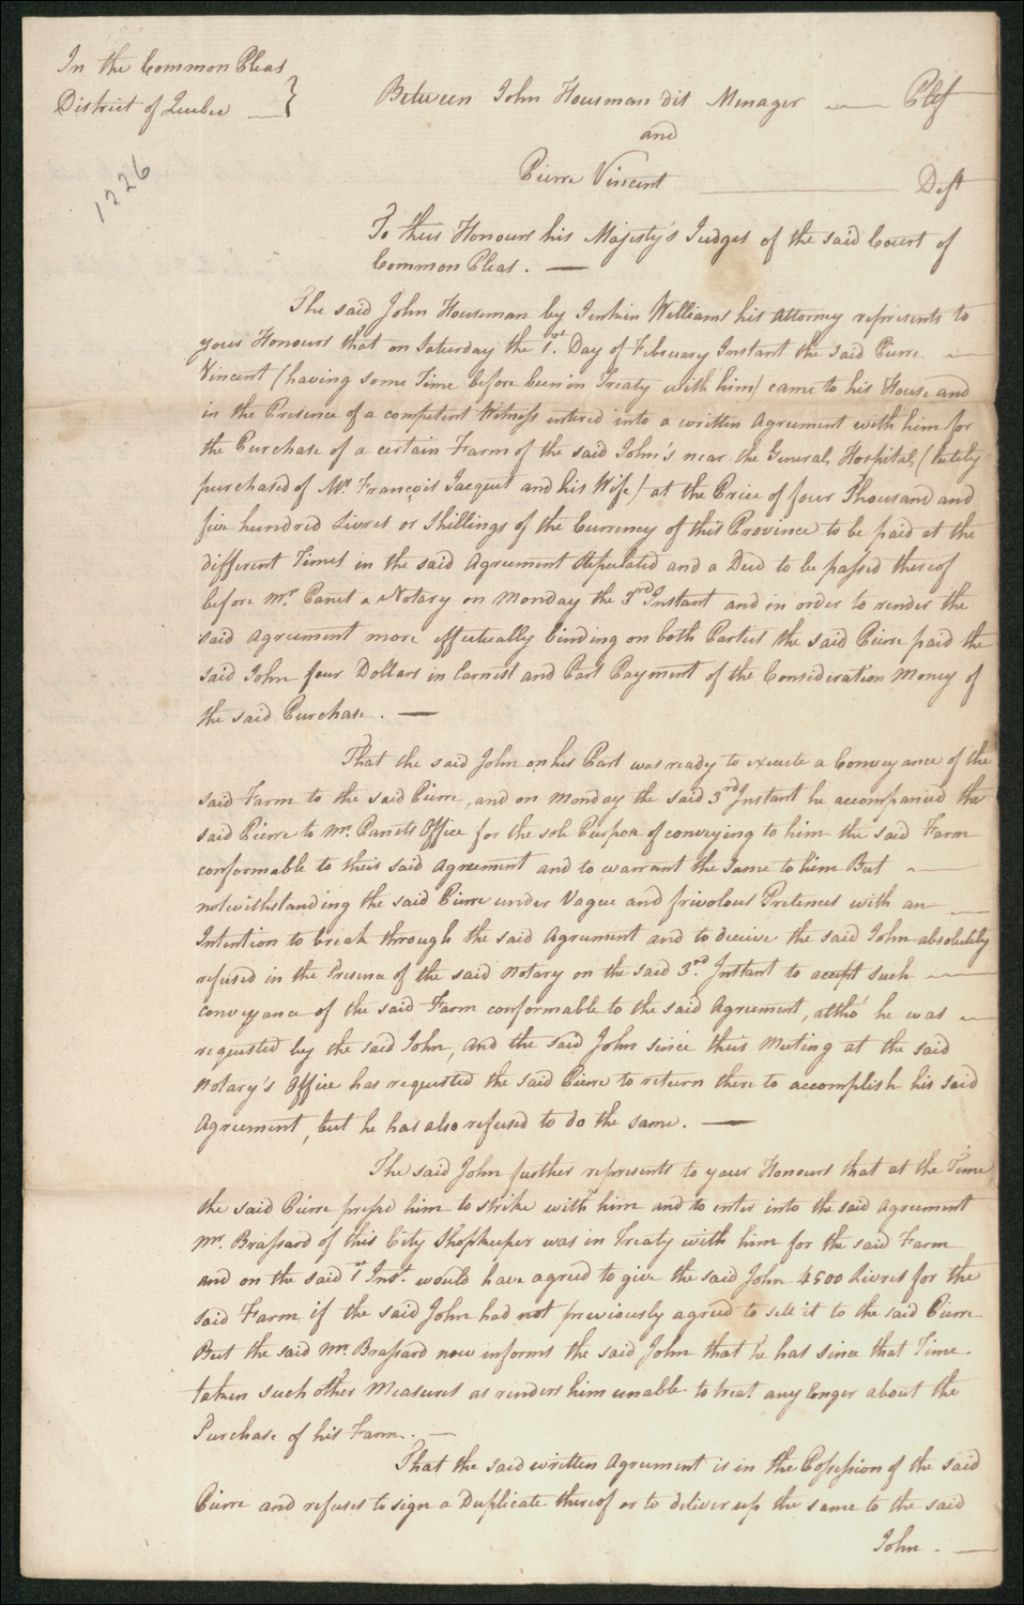 In the Common Pleas
District of Quebec
1226
Between John Housman dit Menager Pltf
and
Pierre Vincent Deft
To their Honours his Majesty's Judges of the said Court of
Common Pleas. —
The said John Houseman by Jenkin Williams his Attorney represents to
your Honours that on Saturday the 1st. Day of February Instant the said Pierre
Vincent (having some Time before been in Treaty with him) came to his House and
in the Presence of a competent Witness entered into a written Agreement with him for
the Purchase of a certain Farm of the said John's near the General Hospital, (lately
purchased of Mr. François Jacquet and his Wife) at the Price of four Thousand and
five hundred Livres or Shillings of the Currency of this Province to be paid at the
different Times in the said Agreement stipulated and a Deed to be passed thereof
before Mr. Panet a Notary on Monday the 3rd Instant and in order to render the
said Agreement more effectually binding on both Parties the said Pierre paid the
said John four Dollars in Earnest and Part Payment of the Consideration Money of
the said Purchase. —
That the said John on his Part was ready to execute a Conveyance of the
said Farm to the said Pierre, and on Monday the said 3rd Instant he accompanied the
said Pierre to Mr. Panets Office for the sole Purpose of conveying to him the said Farm
conformable to their said Agreement and to warrant the Same to him But
notwithstanding the said Pierre under Vague and frivolous Pretences with an
Intention to break through the said Agreement and to deceive the said John absolutely
refused in the Presence of the said Notary on the said 3rd. Instant to accept such
conveyance of the said Farm conformable to the said Agreement, altho' he was
requested by the said John, and the said John since their Meeting at the said
Notary's Office has requested the said Pierre to return there to accomplish his said
Agreement, but he has also refused to do the same. —
The said John further represents to your Honours that at the Time
the said Pierre presse'd him to strike with him and to enter into the said Agreement
Mr. Brassard of this City Shopkeeper was in Treaty with him for the said Farm
and on the said 1st Inst. would have agreed to give the said John 4500 Livres for the
said Farm if the said John had not previously agreed to sell it to the said Pierre
But the said Mr. Brassard now informs the said John that he has since that Time
taken such other Measures as renders him unable to treat any longer about the
Purchase of his Farm. —
That the said written Agreement is in the Possession of the said
Pierre and refuses to sign a Duplicate thereof or to deliver up the same to the said
John. —